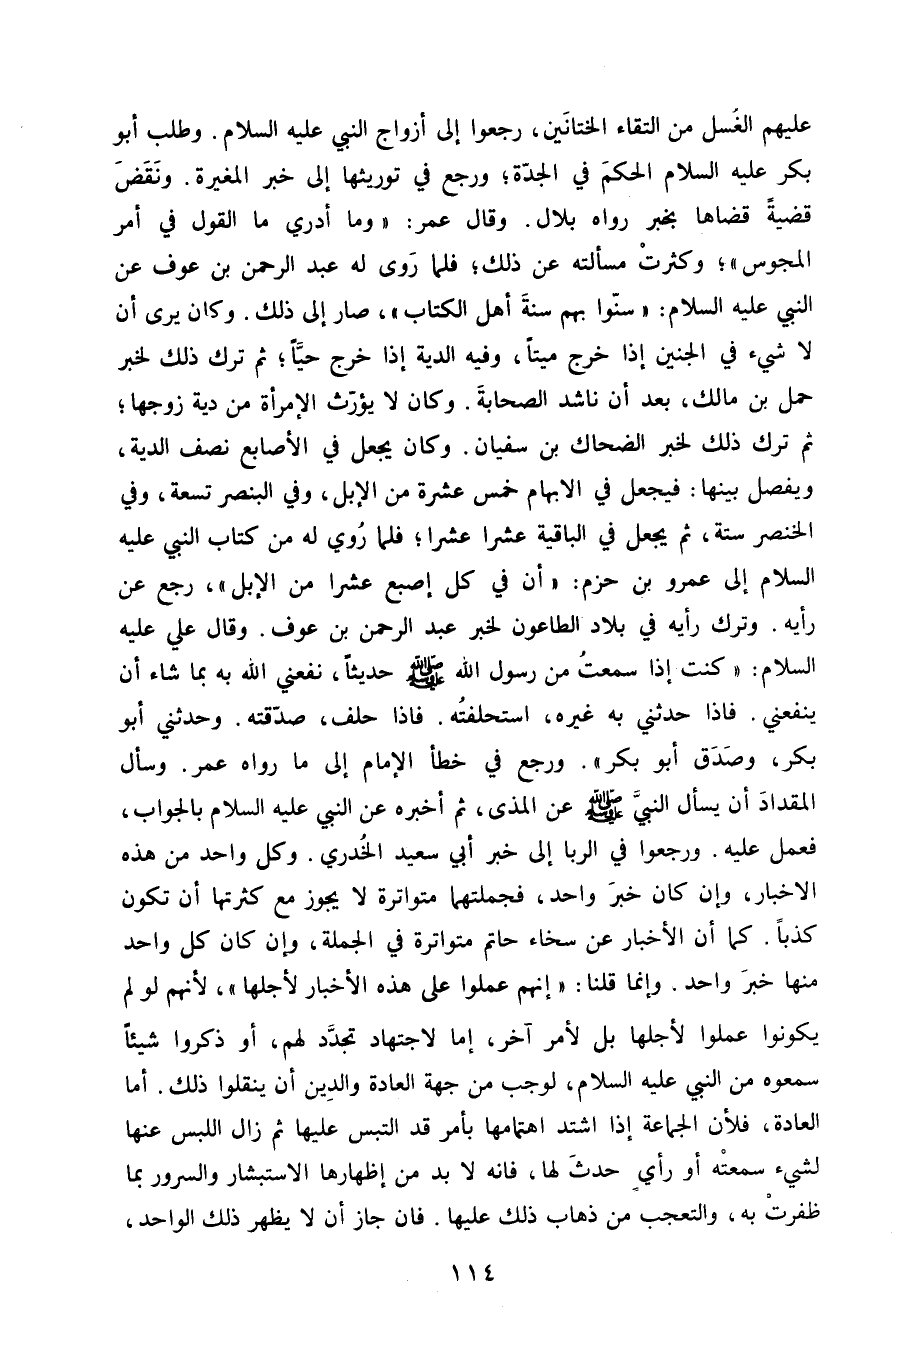 عليهم الغُسل من التقاء الختانَين، رجعوا إلى أزواج النبي عليه السلام. وطلب أبو
بكر عليه السلام الحكمَ في الجدّة؛ ورجع في توريثها إلى خبر المغيرة. ونَقَضَ
قضيةً قضاها بخبر رواه بلال. وقال عمر: « وما أدري ما القول في أمر
المجوس »؛ وكثرتْ مسألته عن ذلك؛ فلما رَوى له عبد الرحمن بن عوف عن
النبي عليه السلام: « سنّوا بهم سنةَ أهل الكتاب »، صار إلى ذلك. وكان يرى أن
لا شيء في الجنين إذا خرج ميتاً، وفيه الدية إذا خرج حيَّاً؛ ثم ترك ذلك لخبر
حمل بن مالك، بعد أن ناشد الصحابةَ. وكان لا يورّث الإمرأة من دية زوجها؛
ثم ترك ذلك لخبر الضحاك بن سفيان. وكان يجعل في الأصابع نصف الدية،
ويفصل بينها: فيجعل في الابهام خمس عشرة من الإبل، وفي البنصر تسعة، وفي
الخنصر ستة، ثم يجعل في الباقية عشرا عشرا؛ فلما رُوي له من كتاب النبي عليه
السلام إلى عمرو بن حزم: « أن في كل إصبع عشرا من الإبل »، رجع عن
رأيه. وترك رأيه في بلاد الطاعون لخبر عبد الرحمن بن عوف. وقال علي عليه
السلام: « كنت إذا سمعتُ من رسول الله ﷺ حديثاً، نفعني الله به بما شاء أن
ينفعني. فاذا حدثني به غيره، استحلفتُه. فاذا حلف، صدّقته. وحدثني أبو
بكر، وصَدَق أبو بكر ». ورجع في خطأ الإمام إلى ما رواه عمر. وسأل
المقدادَ أن يسأل النبيَّ ﷺ عن المذى، ثم أخبره عن النبي عليه السلام بالجواب،
فعمل عليه. ورجعوا في الربا إلى خبر أبي سعيد الخُدري. وكل واحد من هذه
الاخبار، وإن كان خبرَ واحد، فجملتهما متواترة لا يجوز مع كثرتها أن تكون
كذباً. كما أن الأخبار عن سخاء حاتم متواترة في الجملة، وإن كان كل واحد
منها خبرَ واحد. وإنما قلنا: « إنهم عملوا على هذه الأخبار لأجلها »، لأنهم لو لم
يكونوا عملوا لأجلها بل لأمر آخر، إما لاجتهاد تجدَّد لهم، أو ذكروا شيئاً
سمعوه من النبي عليه السلام، لوجب من جهة العادة والدِين أن ينقلوا ذلك. أما
العادة، فلأن الجماعة إذا اشتد اهتمامها بأمر قد التبس عليها ثم زال اللبس عنها
لشيء سمعتْه أو رأيٍ حدثَ لها، فانه لا بد من إظهارها الاستبشار والسرور بما
ظفرتْ به، والتعجب من ذهاب ذلك عليها. فان جاز أن لا يظهر ذلك الواحد،
١١٤